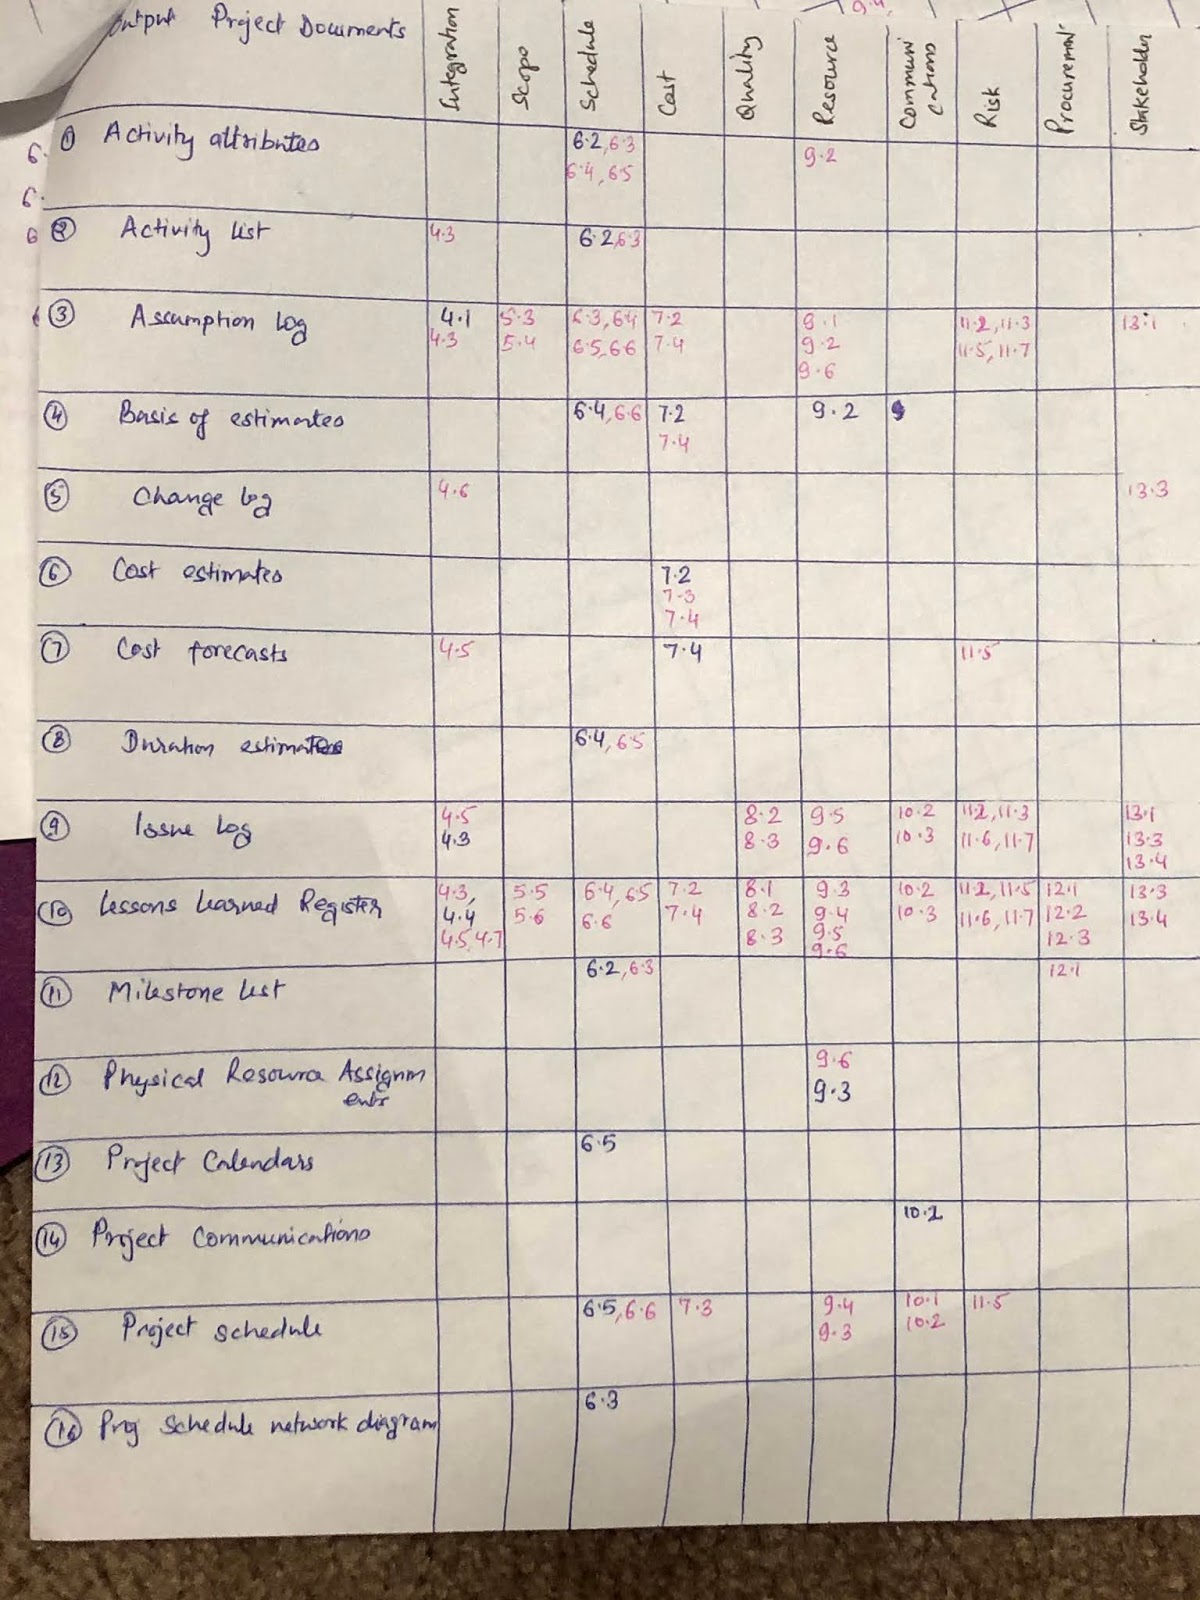 9.4,
output Project Documents Integration Scope Schedule Cost Quality Resource Communi Risk Procurement Stakeholder
cations
① Activity attributes 6.2,6.3 9.2
6.4,6.5
② Activity list 4.3 6.2,6.3
③ Assumption log 4.1 5.3 6.3,6.4 7.2 9.1 11.2,11.3 13.1
4.3 5.4 6.5,6.6 7.4 9.2 11.5,11.7
9.6
④ Basis of estimates 6.4,6.6 7.2 9.2
7.4
⑤ Change log 4.6 13.3
⑥ Cost estimates 7.2
7.3
7.4
⑦ Cost forecasts 4.5 7.4 11.5
⑧ Duration estimates 6.4,6.5
⑨ Issue log 4.5 8.2 9.5 10.2 11.2,11.3 13.1
4.3 8.3 9.6 10.3 11.6,11.7 13.3
13.4
⑩ Lessons learned Register 4.3, 5.5 6.4,6.5 7.2 8.1 9.3 10.2 11.2,11.5 12.1 13.3
4.4 5.6 6.6 7.4 8.2 9.4 10.3 11.6,11.7 12.2 13.4
4.5,4.7 8.3 9.5 12.3
9.6
⑪ Milestone list 6.2,6.3 12.1
⑫ Physical Resource Assignm 9.6
ents 9.3
⑬ Project Calendars 6.5
⑭ Project Communications 10.2
⑮ Project schedule 6.5,6.6 7.3 9.4 10.1 11.5
9.3 10.2
⑯ Proj schedule network diagram 6.3